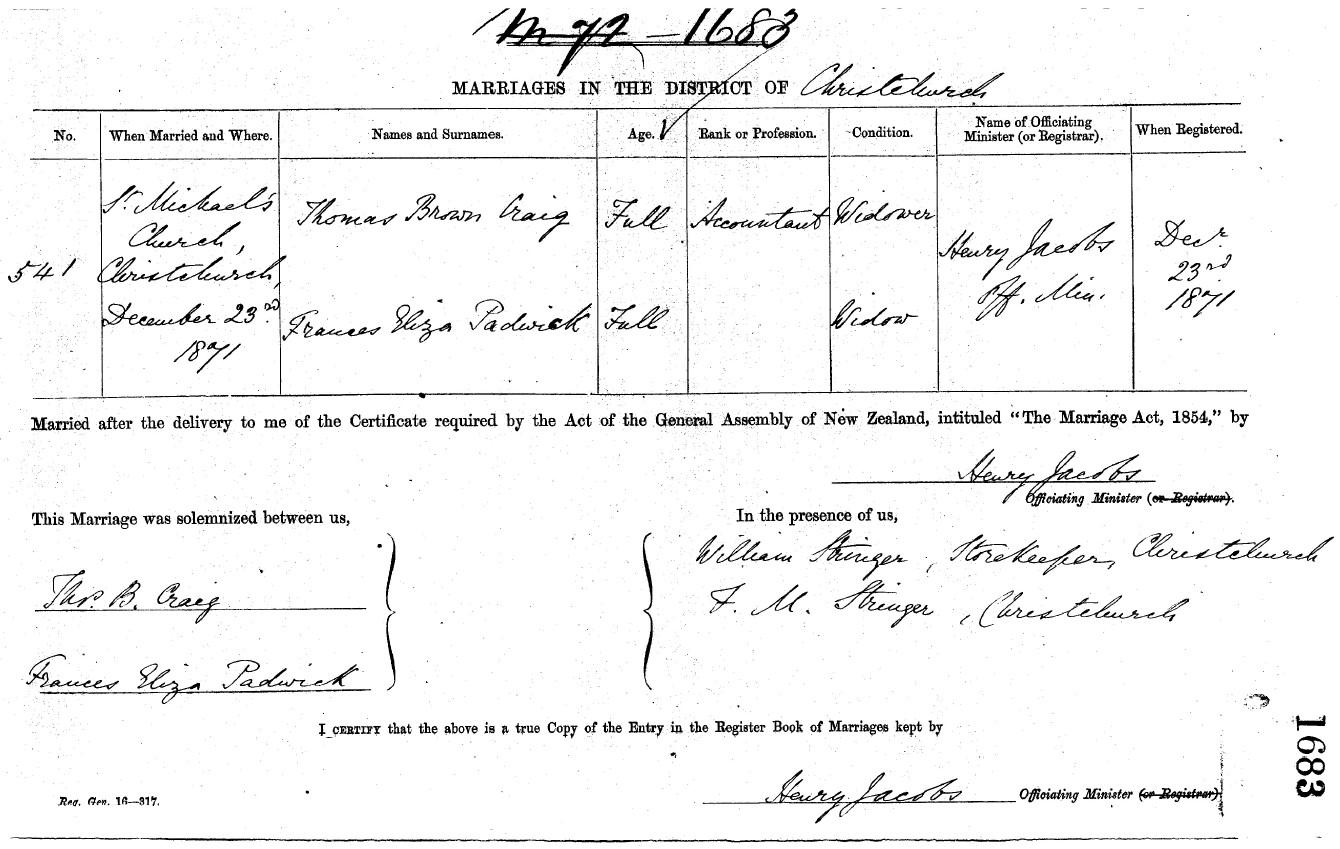 M 72 – 1683
MARRIAGES IN THE DISTRICT OF Christchurch
No. When Married and Where. Names and Surnames. Age. Rank or Profession. Condition. Name of Officiating Minister (or Registrar). When Registered.
541
St. Michael's
Church,
Christchurch,
December 23rd
1871
Thomas Brown Craig Full Accountant Widower
Frances Eliza Padwick Full Widow
Henry Jacobs
Off. Min.
Decr.
23rd
1871
Married after the delivery to me of the Certificate required by the Act of the General Assembly of New Zealand, intituled "The Marriage Act, 1854," by
Henry Jacobs
Officiating Minister (or Registrar).
This Marriage was solemnized between us,
In the presence of us,
William Stringer, Storekeeper, Christchurch
Thos. B. Craig
F. M. Stringer, Christchurch
Frances Eliza Padwick
I CERTIFY that the above is a true Copy of the Entry in the Register Book of Marriages kept by
Reg. Gen. 16—317.
Henry Jacobs Officiating Minister (or Registrar)
1683